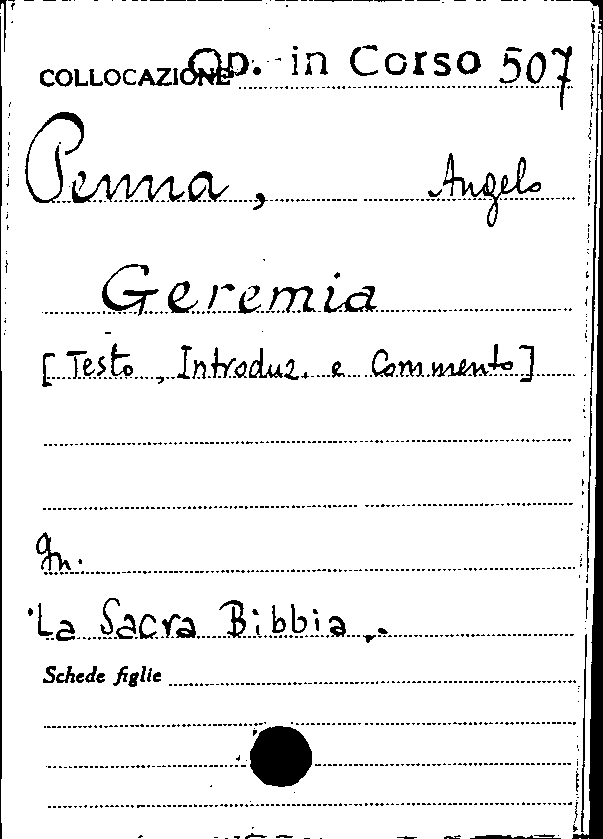 COLLOCAZIONE Op. in Corso 507
Penna, Angelo
Geremia
[Testo, Introduz. e Commento]
In.
La Sacra Bibbia..
Schede figlie